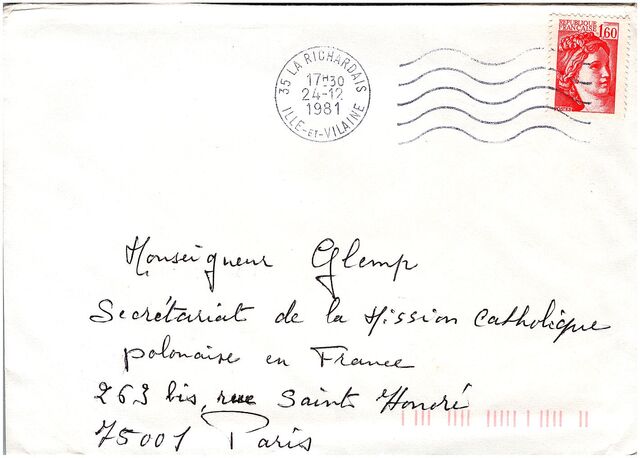 REPUBLIQUE
FRANÇAISE 1,60
35 LA RICHARDAIS
17H30
24-12
1981
ILLE-ET-VILAINE
Monseigneur Glemp
Secrétariat de la Mission Catholique
polonaise en France
263 bis, rue Saint Honoré
75001 Paris